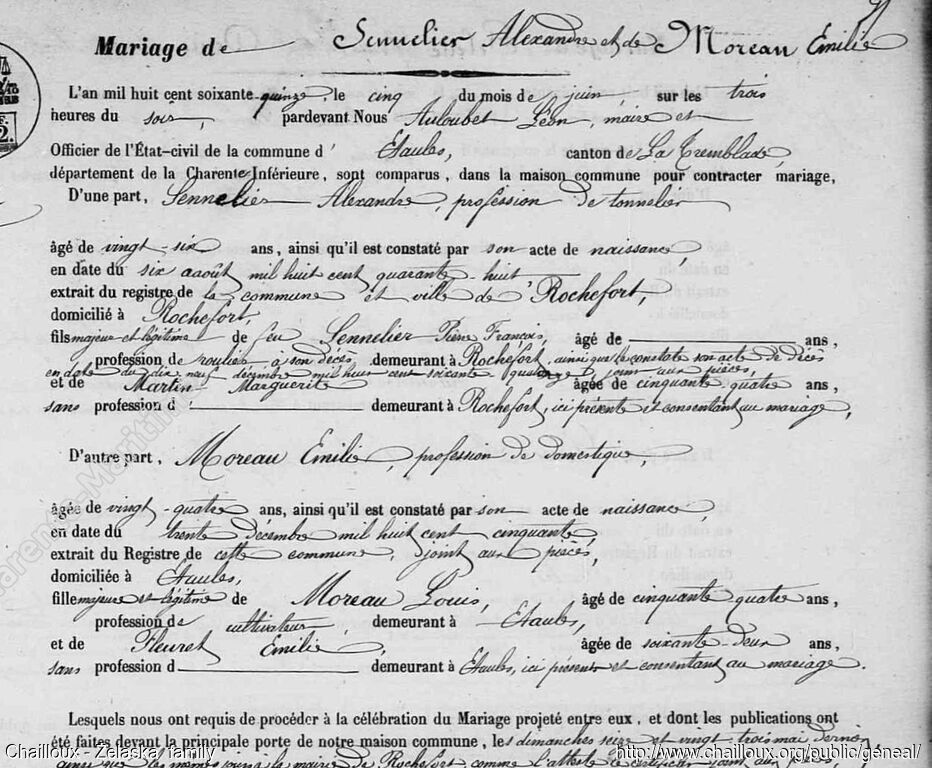 Mariage de Sennelier Alexandre et de Moreau Emilie
L'an mil huit cent soixante-quinze, le cinq du mois de juin, sur les trois
heures du soir, pardevant Nous Auloubet Léon, maire et
Officier de l'État-civil de la commune d' Etaules, canton de La Tremblade,
département de la Charente-Inférieure, sont comparus, dans la maison commune pour contracter mariage,
D'une part, Sennelier Alexandre, profession de tonnelier
âgé de vingt-six ans, ainsi qu'il est constaté par son acte de naissance,
en date du six août mil huit cent quarante-huit
extrait du registre de la commune et ville de Rochefort,
domicilié à Rochefort,
fils majeur et légitime de feu Sennelier Pierre François, âgé de ans,
profession de roulier à son décès, demeurant à Rochefort, ainsi que le constate son acte de décès
en date du dix neuf décembre mil huit cent soixante quatorze D. joint aux pièces,
et de Martin Marguerite âgée de cinquante quatre ans,
sans profession d demeurant à Rochefort, ici présente et consentant au mariage,
D'autre part, Moreau Emilie, profession de domestique,
âgée de vingt-quatre ans, ainsi qu'il est constaté par son acte de naissance,
en date du trente décembre mil huit cent cinquante,
extrait du Registre de cette commune, D. joint aux pièces,
domiciliée à Etaules,
fille majeure et légitime de Moreau Louis, âgé de cinquante quatre ans,
profession de cultivateur, demeurant à Etaules,
et de Fleuret Emilie, âgée de soixante-deux ans,
sans profession d demeurant à Etaules, ici présents et consentant au mariage.
Lesquels nous ont requis de procéder à la célébration du Mariage projeté entre eux, et dont les publications ont
été faites devant la principale porte de notre maison commune, les dimanches seize et vingt-trois mai dernier
ainsi que les mêmes jours la mairie de Rochefort comme l'atteste le certificat joint aux pièces
Chailloux - Zelaska family http://www.chailloux.org/public/geneal/